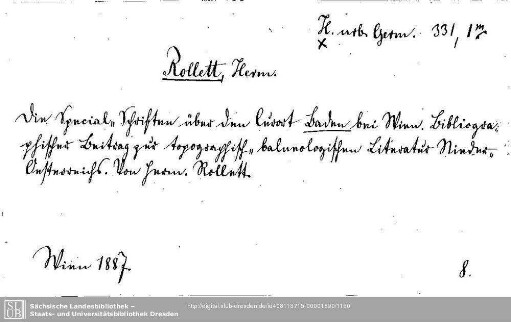 H. urb. Germ. 331, 1m
x
Rollett, Herm.
Die Special-Schriften über den Curort Baden bei Wien. Bibliogra-
phischer Beitrag zur topographisch-balneologischen Literatur Nieder-
Oesterreichs. Von Herm. Rollett.
Wien 1887.
8.
SLUB
Sächsische Landesbibliothek –
Staats- und Universitätsbibliothek Dresden